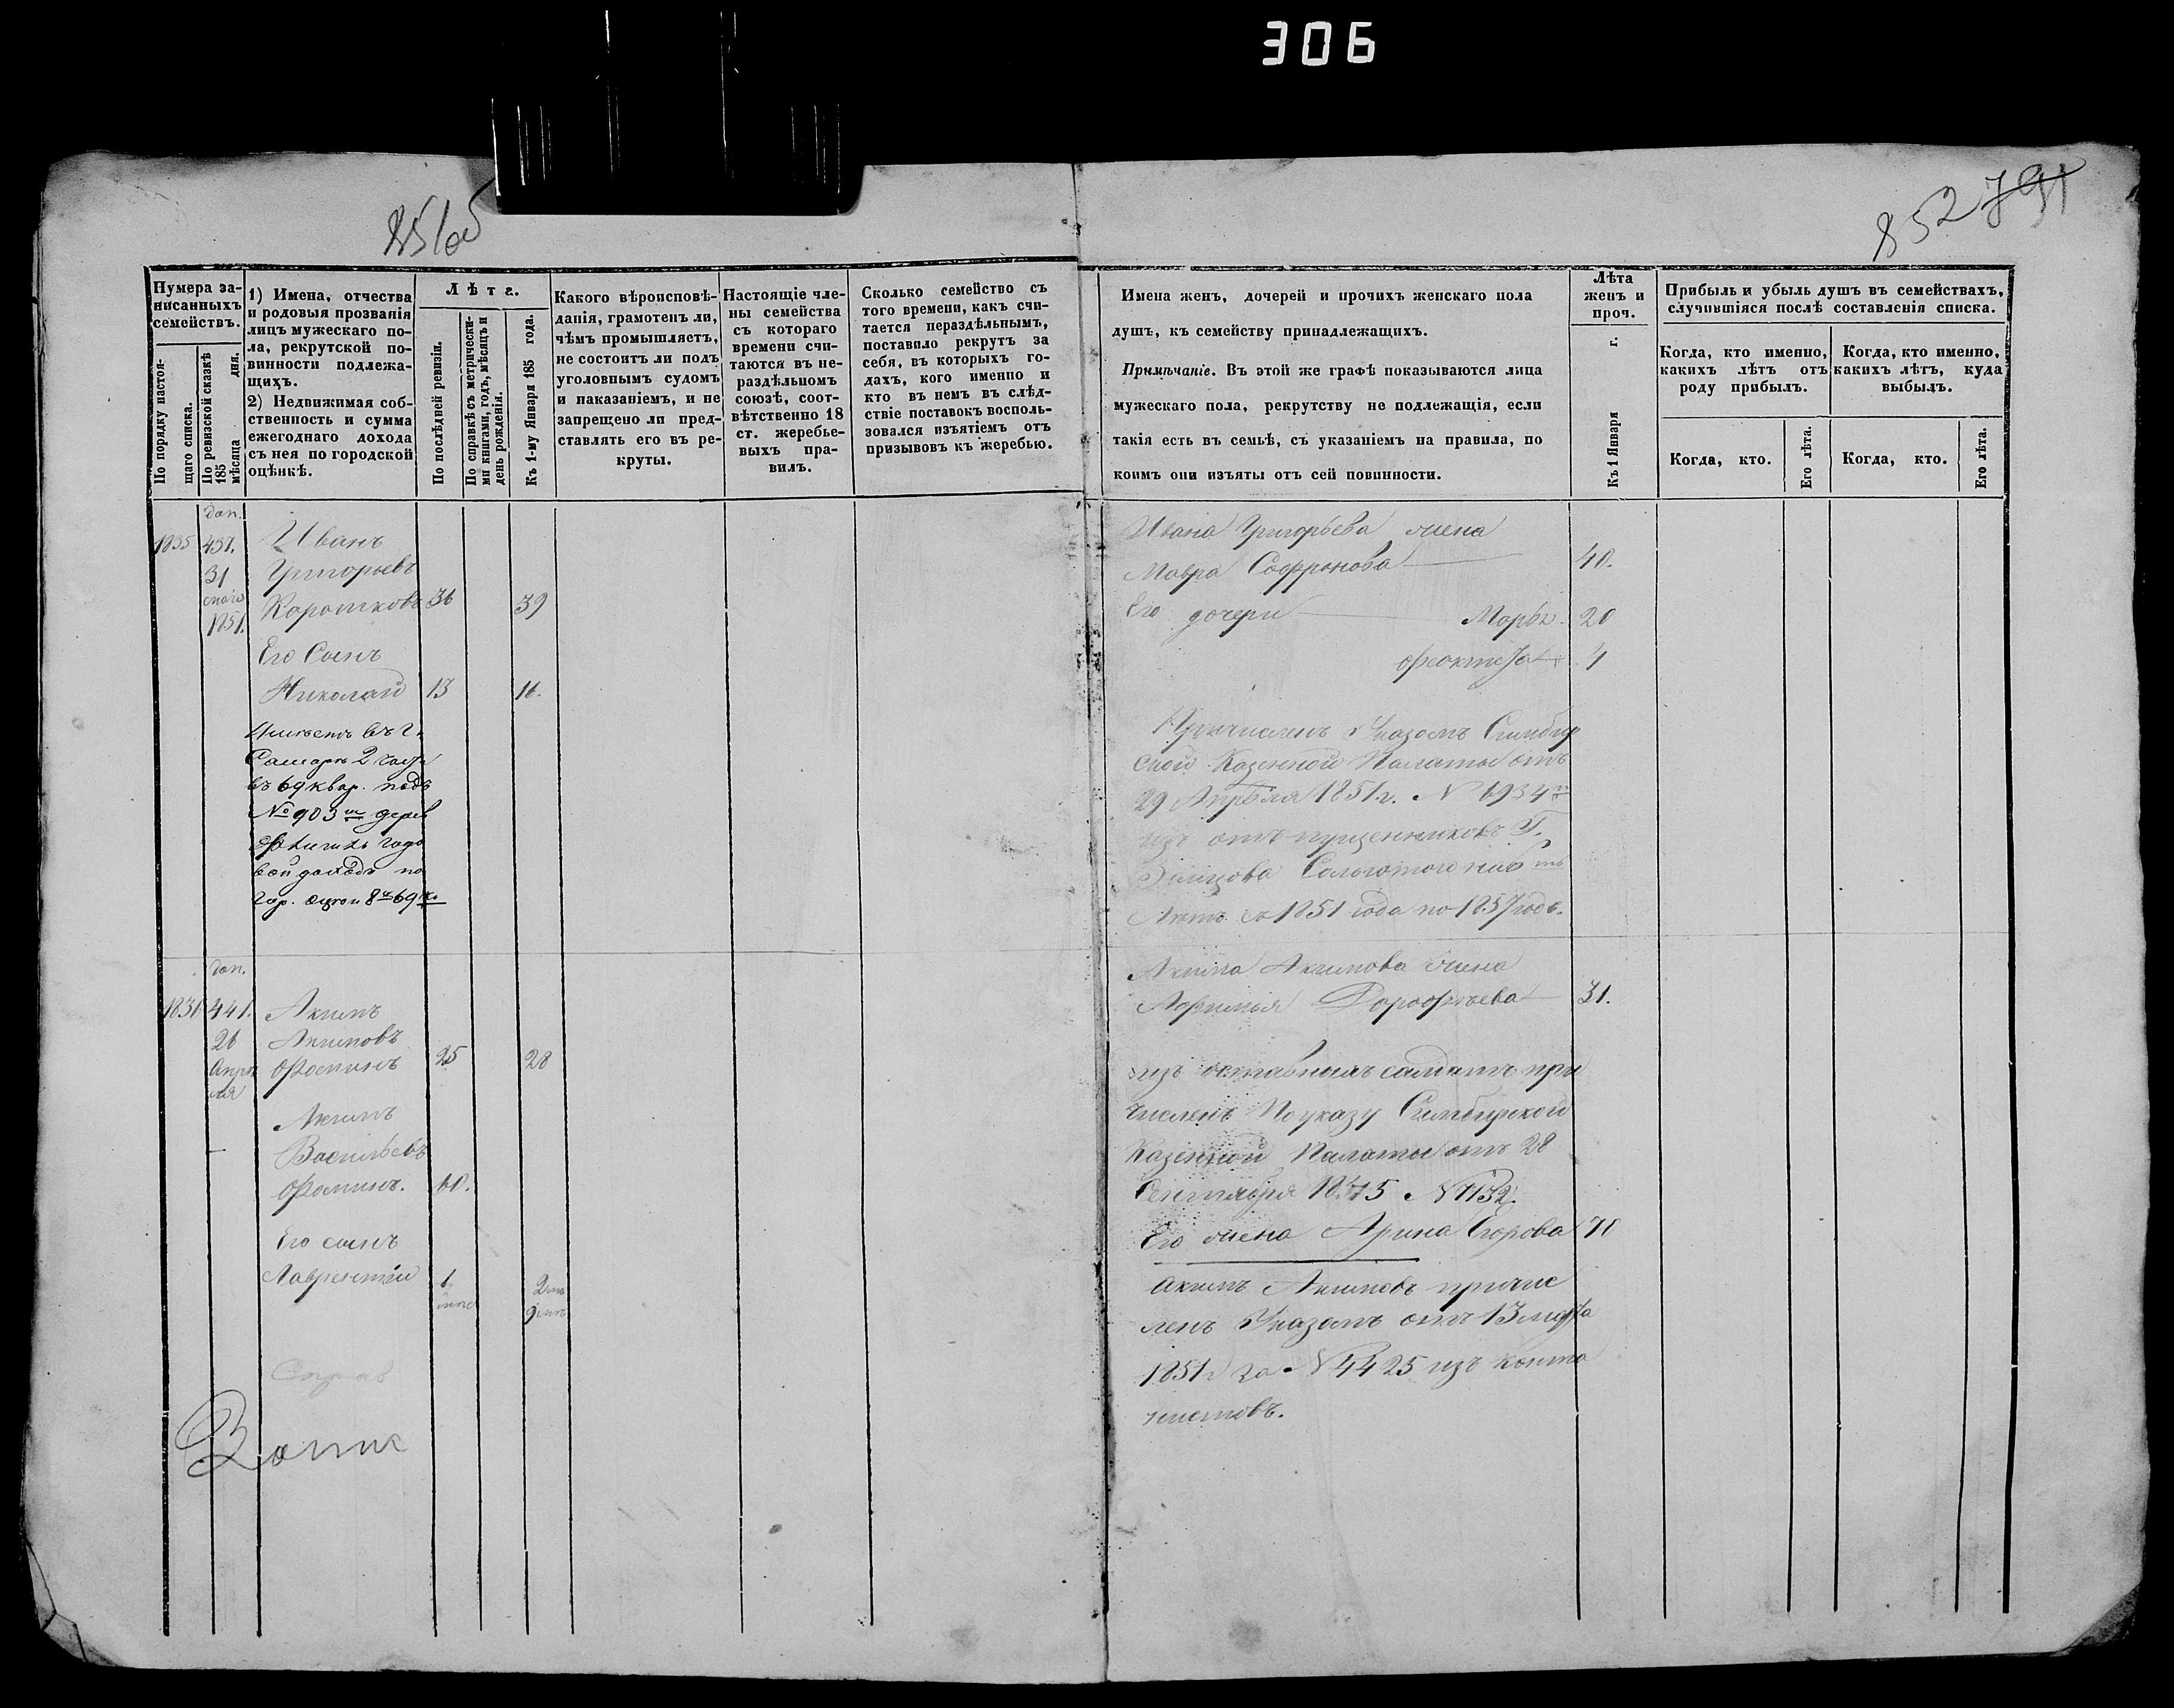 306
851об
852 791
Нумера записанныхъ семействъ.
По порядку настоящаго списка.
По ревизской сказкѣ 185 мѣсяца дня.
1) Имена, отчества и родовыя прозванія лицъ мужескаго пола, рекрутской повинности подлежащихъ.
2) Недвижимая собственность и сумма ежегоднаго дохода съ нея по городской оцѣнкѣ.
Лѣта.
По послѣдней ревизіи.
По справкѣ съ метрическими книгами, годъ, мѣсяцъ и день рожденія.
Къ 1-му Января 185 года.
Какого вѣроисповѣданія, грамотенъ ли, чѣмъ промышляетъ, не состоитъ ли подъ уголовнымъ судомъ и наказаніемъ, и не запрещено ли представлять его въ рекруты.
Настоящіе члены семейства съ котораго времени считаются въ нераздѣльномъ союзѣ, соотвѣтственно 18 ст. жеребьевыхъ правилъ.
Сколько семейство съ того времени, какъ считается нераздѣльнымъ, поставило рекрутъ за себя, въ которыхъ годахъ, кого именно и кто въ немъ въ слѣдствіе поставокъ воспользовался изъятіемъ отъ призывовъ къ жеребью.
Имена женъ, дочерей и прочихъ женскаго пола
душъ, къ семейству принадлежащихъ.
Примѣчаніе. Въ этой же графѣ показываются лица
мужескаго пола, рекрутству не подлежащія, если
такія есть въ семьѣ, съ указаніемъ на правила, по
коимъ они изъяты отъ сей повинности.
Лѣта женъ и проч.
Къ 1 Января г.
Прибыль и убыль душъ въ семействахъ, случившіяся послѣ составленія списка.
Когда, кто именно, какихъ лѣтъ отъ роду прибылъ.
Когда, кто именно, какихъ лѣтъ, куда выбылъ.
Когда, кто.
Его лѣта.
Когда, кто.
Его лѣта.
доп.
1835 437. Иванъ
31 Григорьевъ
Коротковъ 36 39
1851.
Его Сынъ
Николай 13 16.
Имѣетъ въ г.
Самарѣ 2 части
въ 69 квар. подъ
№ 903 м дерев
годо
вой доходъ по
гор. 8 69
Ивана Григорьева жена
Мавра Софронова 40.
Его дочери Марья 20
Феоктиста 4
Причисленъ Указомъ Симбир
ской Казенной Палаты отъ
29 Апрѣля 1851 г. № 6934
изъ отпущенниковъ Г.
Лѣтъ съ 1851 года по 1857 годъ.
доп.
1836 441. Акимъ
26 Акимовъ
Апрѣ Фоминъ 25 28
ля
Акимъ
Васильевъ
Фоминъ. 60.
Его сынъ
Лаврентій 1. 2
9
Акима Акимова жена
Афимья Дорофѣева 31.
изъ отставныхъ солдатъ при
численъ По указу Симбирской
Казенной Палаты отъ 28
Сентября 1845 № 7132
Его жена Арина Егорова 70
Акимъ Акимовъ причис
ленъ Указомъ отъ 13 марта
1851 г за № 4425 изъ канто
нистовъ.